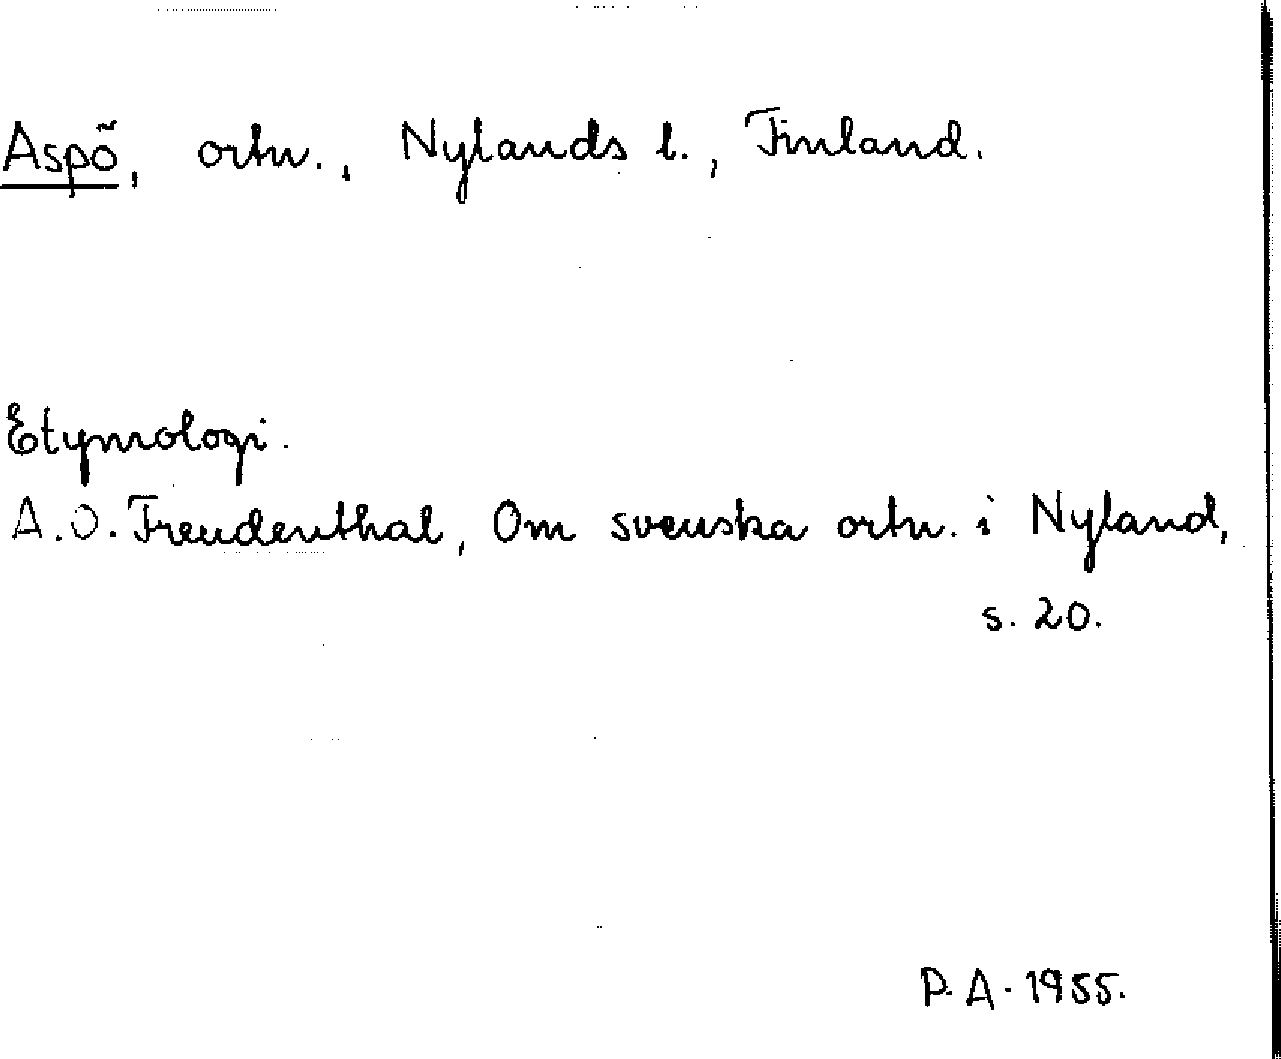 Aspö, ortn., Nylands l., Finland.
Etymologi.
A.O. Freudenthal, Om svenska ortn. i Nyland,
s. 20.
P.A. 1955.